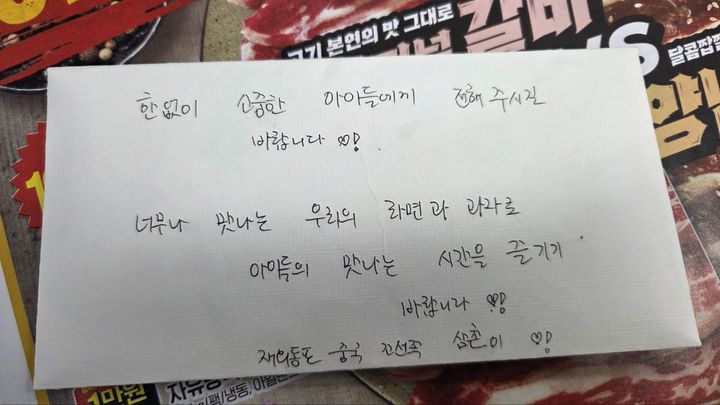 고기 본연의 맛 그대로
갈비
VS
달콤짭
양
한없이 소중한 아이들에게 전해 주시길
바랍니다 ♡!.
너무나 맛나는 우리의 라면과 과자로
아이들의 맛나는 시간을 즐기기
바랍니다 ♡!
재외동포 중국 조선족 삼촌이 ♡!
1만원